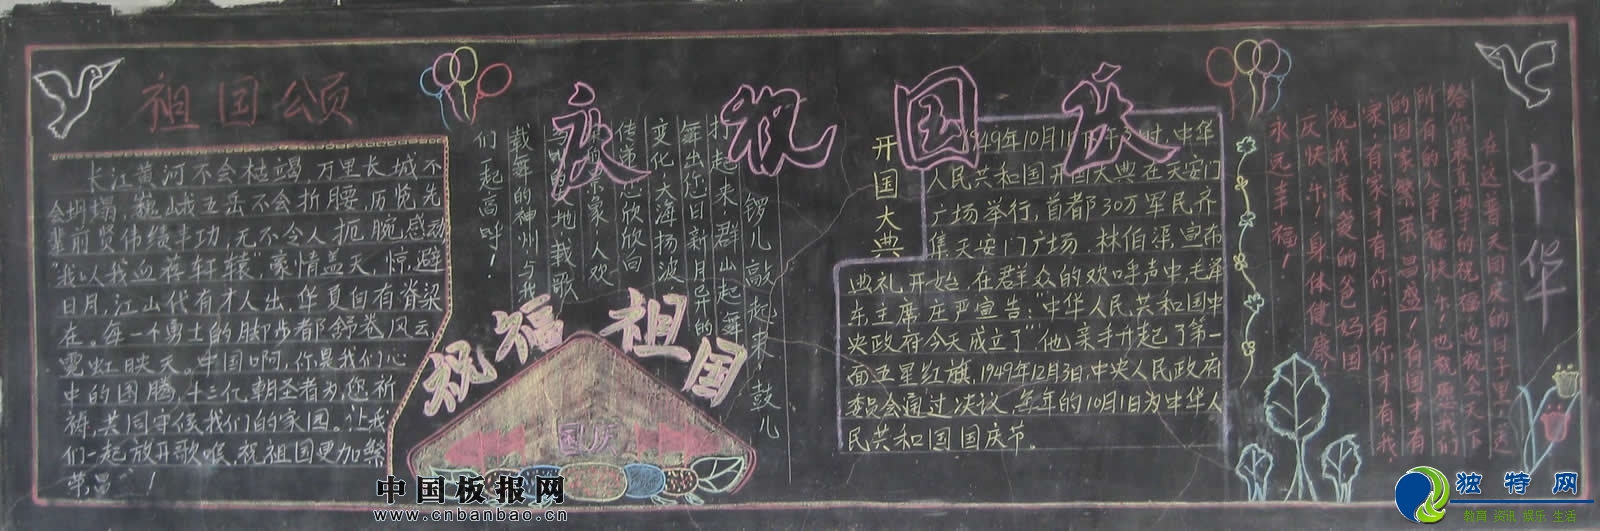 庆祝国庆
祖国颂
长江黄河不会枯竭,万里长城不
会坍塌,巍峨五岳不会折腰,历览先
辈前贤伟绩丰功,无不令人扼腕感动
"我以我血荐轩辕",豪情盖天,惊避
日月,江山代有才人出,华夏自有脊梁
在。每一个勇士的脚步都舒卷风云,
霓虹映天。中国啊,你是我们心
中的图腾,十三亿朝圣者为您祈
祷,共同守候我们的家园。让我
们一起放开歌喉,祝祖国更加繁
荣昌"!
锣儿敲起来,鼓儿
打起来,群山起舞
舞出你日新月异的
变化,大海扬波
传来
欣欣向
象,人欢
地载歌
载舞的神州,与我
们一起高呼!
祝福祖国
国庆
开国大典
1949年10月1日下午3时,中华
人民共和国开国大典在天安门
广场举行,首都30万军民齐
集天安门广场,林伯渠,宣布
典礼开始,在群众的欢呼声中,毛泽
东主席庄严宣告:"中华人民共和国中
央政府今天成立了"他亲手升起了第一
面五星红旗,1949年12月3日,中央人民政府
委员会通过决议,每年的10月1日为中华人
民共和国国庆节。
中华
在这普天国庆的日子里,送
给你最真挚的祝福,也祝全天下
所有的人幸福快乐!也祝愿我们
的国家繁荣昌盛!有国才有
家,有家才有你,有你才有我
祝我亲爱的爸妈国
庆快乐!身体健康
永远幸福!
中国板报网
www.cnbanbao.cn
独特网
教育 资讯 娱乐 生活